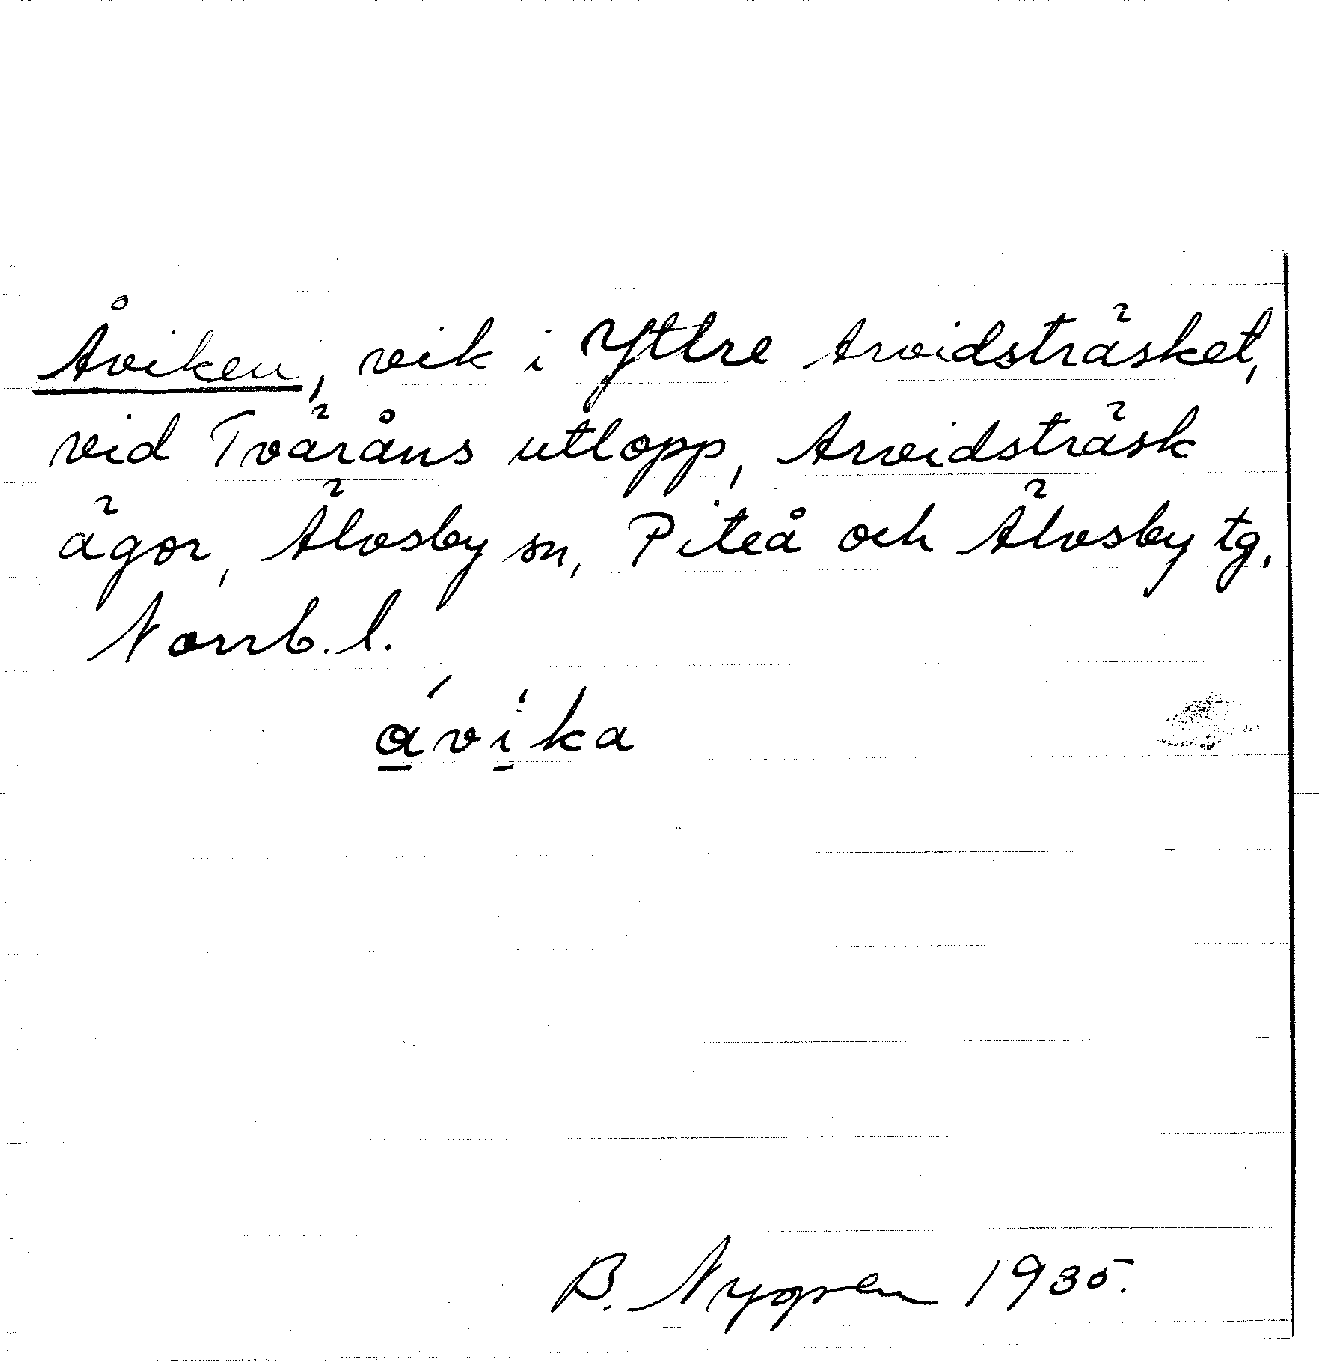 Åviken, vik i Yttre Arvidsträsket,
vid Tväråns utlopp, Arvidsträsk
ägor, Älvsby sn, Piteå och Älvsby tg.
Norrb. l.
ávika
B. Nygren 1935.